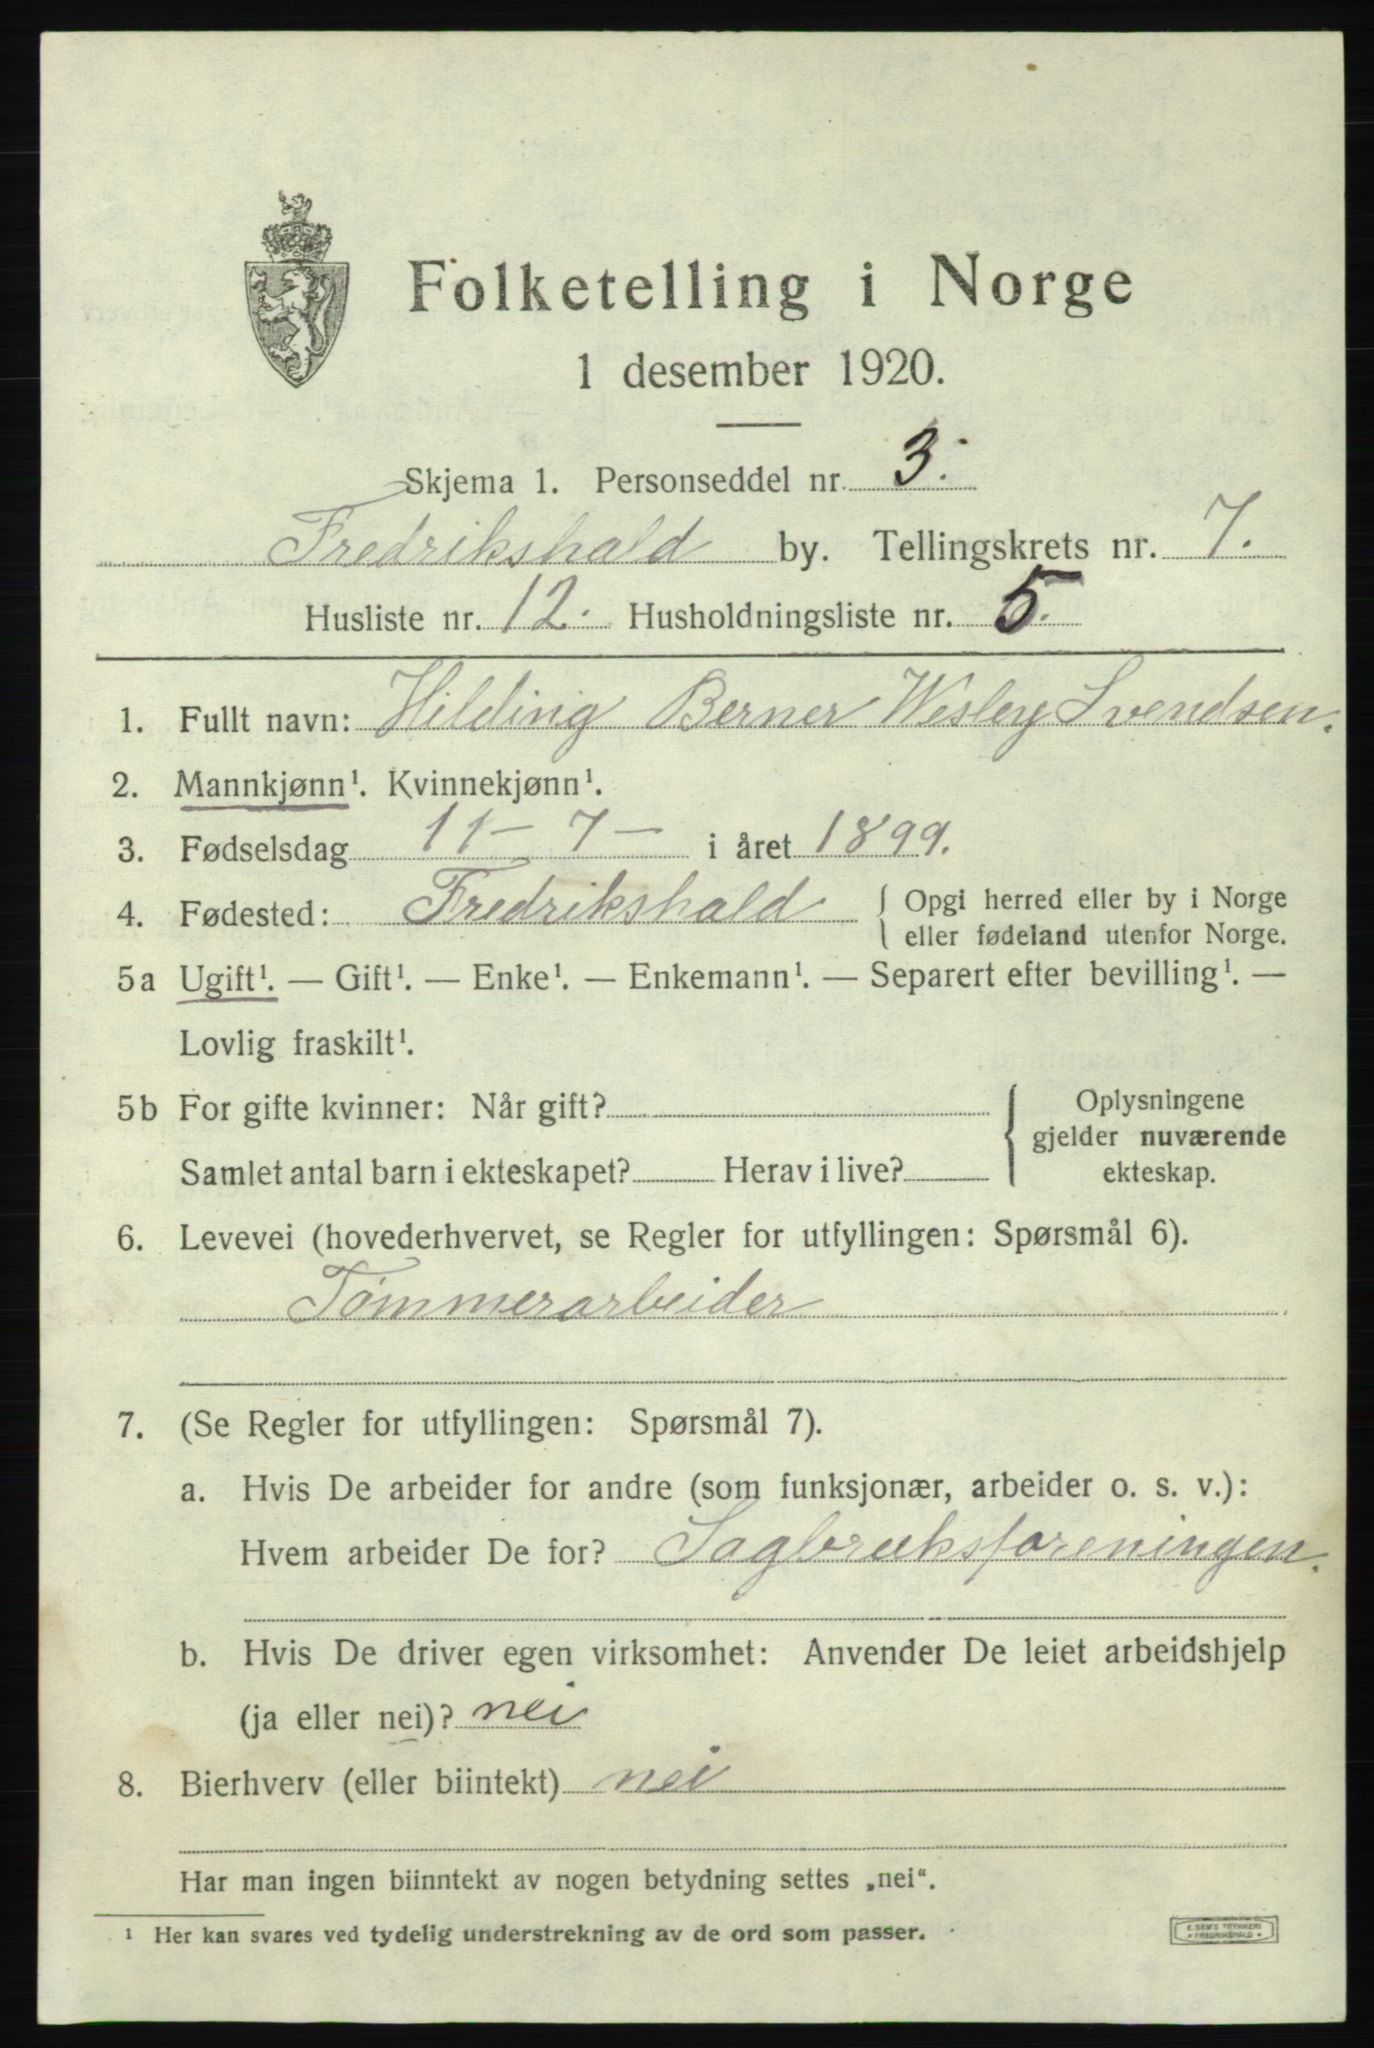 Folketelling i Norge
1 desember 1920.
Skjema 1. Personseddel nr. 3.
Fredrikshald by. Tellingskrets nr. 7.
Husliste nr. 12. Husholdningsliste nr. 5.
1. Fullt navn: Hilding Berner Wesley Svendsen.
2. Mannkjønn¹. Kvinnekjønn¹.
3. Fødselsdag 11 - 7 - i året 1899.
4. Fødested: Fredrikshald { Opgi herred eller by i Norge
eller fødeland utenfor Norge.
5a Ugift¹. — Gift¹. — Enke¹. — Enkemann¹. — Separert efter bevilling¹. —
Lovlig fraskilt¹.
5b For gifte kvinner: Når gift?
Samlet antal barn i ekteskapet? Herav i live?
{ Oplysningene
gjelder nuværende
ekteskap.
6. Levevei (hovederhvervet, se Regler for utfyllingen: Spørsmål 6).
Tømmerarbeider
7. (Se Regler for utfyllingen: Spørsmål 7).
a. Hvis De arbeider for andre (som funksjonær, arbeider o. s. v.):
Hvem arbeider De for? Sagbruksforeningen.
b. Hvis De driver egen virksomhet: Anvender De leiet arbeidshjelp
(ja eller nei)? nei
8. Bierhverv (eller biintekt) nei
Har man ingen biinntekt av nogen betydning settes „nei“.
¹ Her kan svares ved tydelig understrekning av de ord som passer.
E. SEM'S TRYKKERI
FREDRIKSHALD